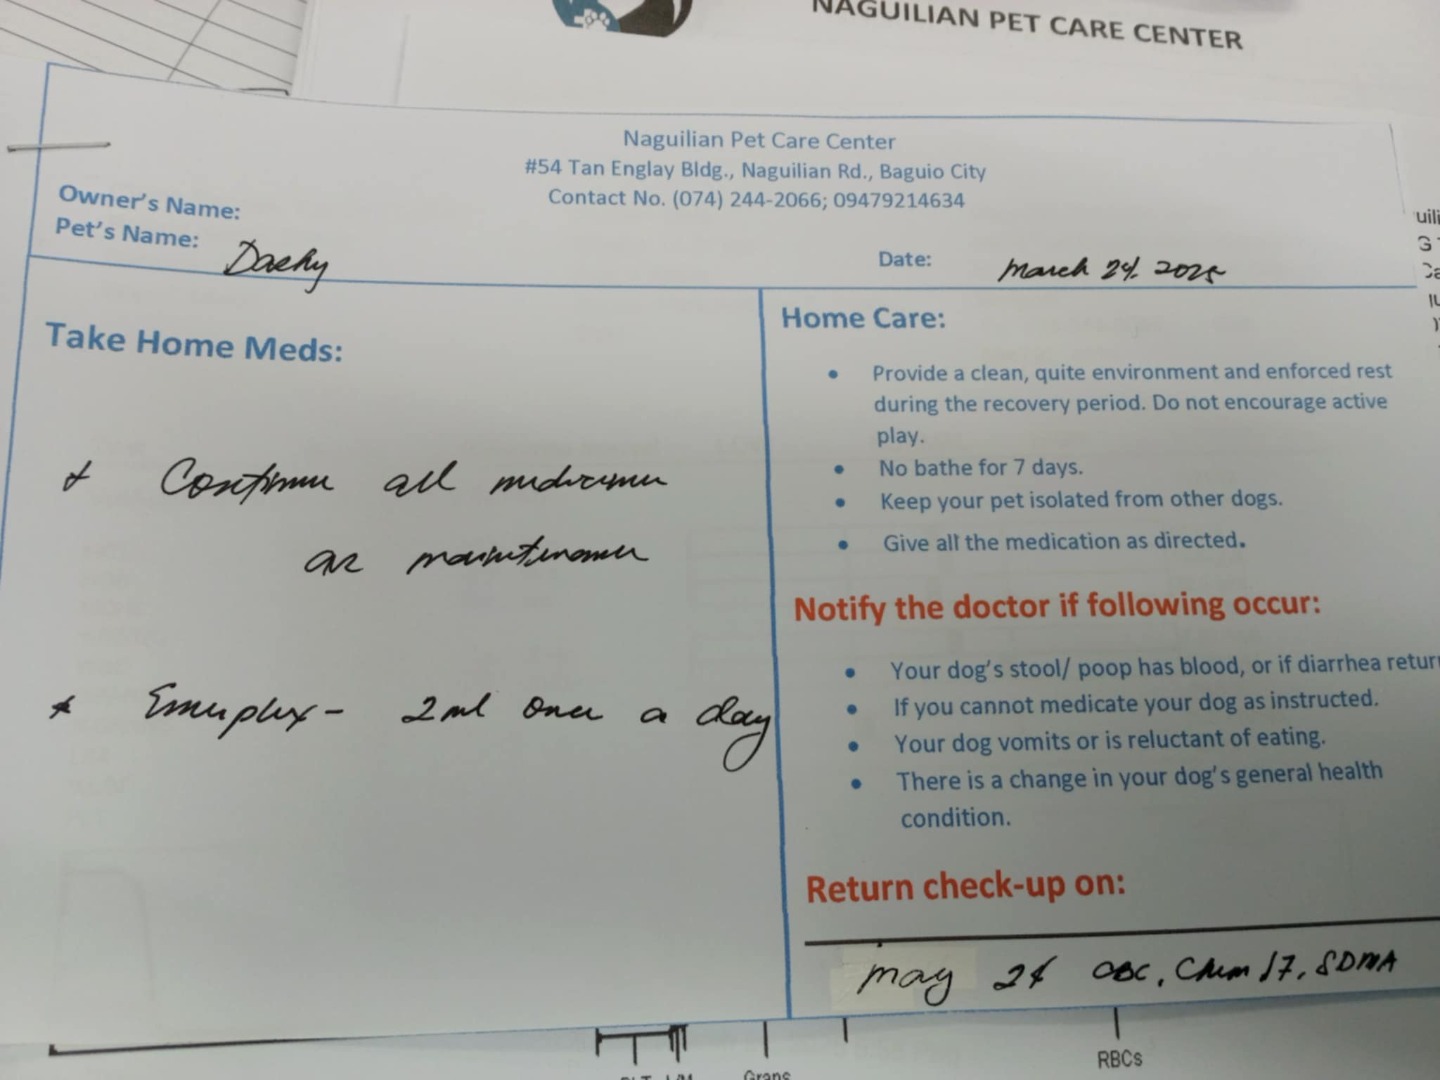 NAGUILIAN PET CARE CENTER
Naguilian Pet Care Center
#54 Tan Englay Bldg., Naguilian Rd., Baguio City
Contact No. (074) 244-2066; 09479214634
Owner's Name:
Pet's Name:
Date: March 24, 2025
Take Home Meds:
Continue all medicine
as maintenance
2ml once a day
Home Care:
• Provide a clean, quite environment and enforced rest
during the recovery period. Do not encourage active
play.
• No bathe for 7 days.
• Keep your pet isolated from other dogs.
• Give all the medication as directed.
Notify the doctor if following occur:
• Your dog's stool/ poop has blood, or if diarrhea retur
• If you cannot medicate your dog as instructed.
• Your dog vomits or is reluctant of eating.
• There is a change in your dog's general health
condition.
Return check-up on:
may 24 CBC, Chem 17, SDMA
Grans
RBCs